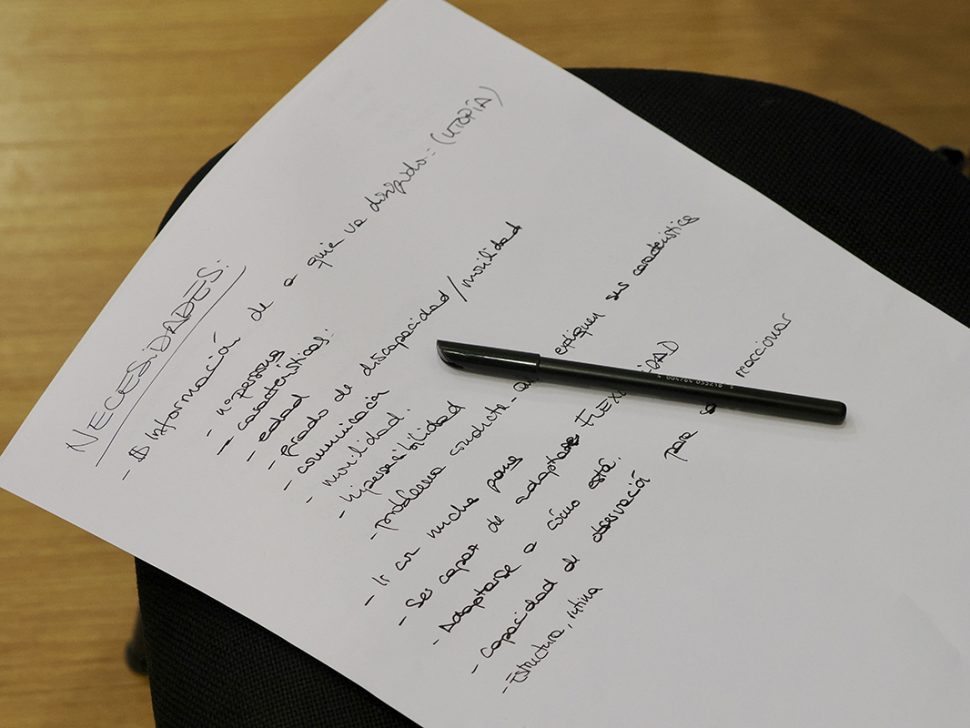 NECESIDADES:
- Información de a quie va dirigido: (UTOPÍA)
- nº persona
- características:
- edad
- grado de discapacidad/movilidad
- comunicación
- movilidad.
- hipersensibilidad
- problema conducta - expliquen sus característica
- Ir con mucha
- Ser capaz de adaptarse FLEXI DAD
- Adaptarse a cómo está.
- Capacidad de observació para reaccionar
- Estructura, rutina